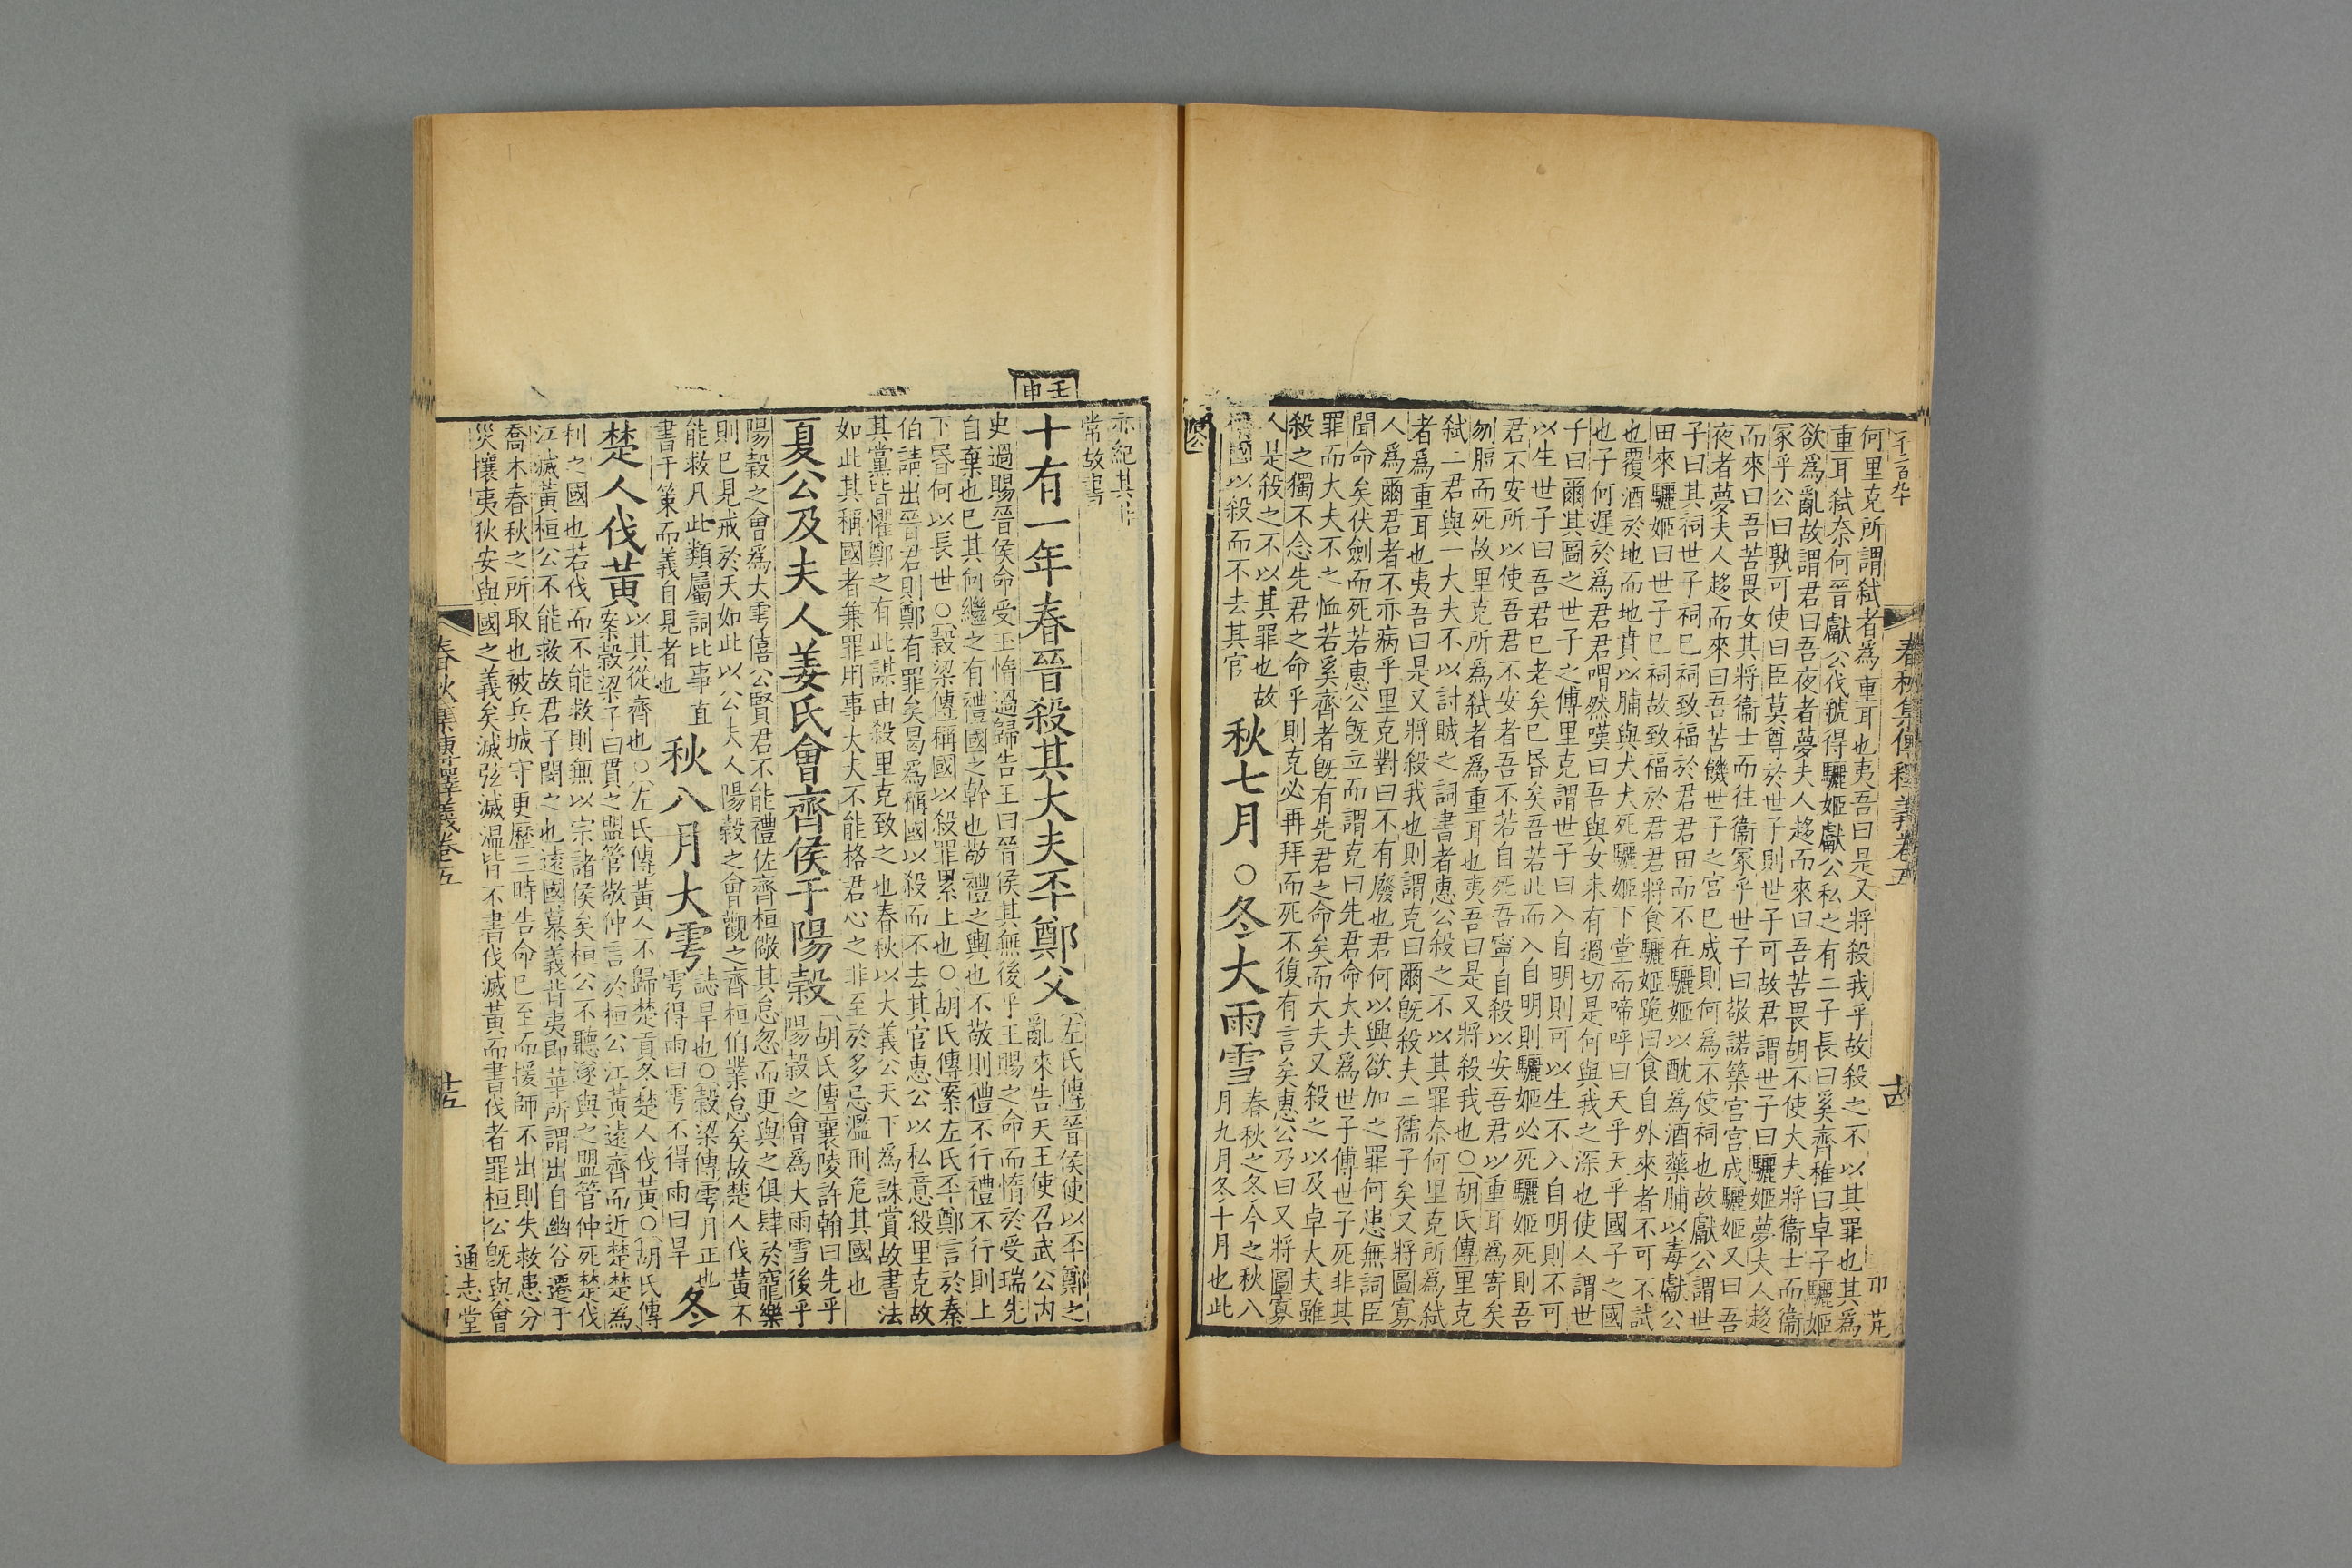 春秋集傳釋義卷五
何里克所謂弑者爲重耳也夷吾曰是又將殺我乎故殺之不以其罪也其爲
重耳弑奈何晉獻公伐虢得驪姬獻公私之有二子長曰奚齊稚曰卓子驪姬
欲爲亂故謂君曰吾夜者夢夫人趍而來曰吾苦畏胡不使大夫將衞士而衞
冢乎公曰孰可使曰臣莫尊於世子則世子可故君謂世子曰驪姬夢夫人趍
而來曰吾苦畏女其將衞士而往衞冢乎世子曰敬諾築宫宫成驪姬又曰吾
夜者夢夫人趍而來曰吾苦饑世子之宫已成則何爲不使祠也故獻公謂世
子曰其祠世子祠已祠致福於君君田而不在驪姬以酖爲酒藥脯以毒獻公
田來驪姬曰世子已祠故致福於君君將食驪姬跪曰食自外來者不可不試
也覆酒於地而地賁以脯與犬犬死驪姬下堂而啼呼曰天乎天乎國子之國
也子何遲於爲君君喟然嘆曰吾與女未有過切是何與我之深也使人謂世
子曰爾其圖之世子之傅里克謂世子曰入自明則可以生不入自明則不可
以生世子曰吾君已老矣已昬矣吾若此而入自明則驪姬必死驪姬死則吾
君不安所以使吾君不安者吾不若自死吾寧自殺以安吾君以重耳爲寄矣
刎脰而死故里克所爲弑者爲重耳也夷吾曰是又將殺我也○胡氏傳里克
弑二君與一大夫不以討賊之詞書者惠公殺之不以其罪奈何里克所爲弑
者爲重耳也夷吾曰是又將殺我也則謂克曰爾旣殺夫二孺子矣又將圖寡
人爲爾君者不亦病乎里克對曰不有廢也君何以興欲加之罪何患無詞臣
聞命矣伏劍而死若惠公旣立而謂克曰先君命大夫爲世子傅世子死非其
罪而大夫不之恤若奚齊者旣有先君之命矣而大夫又殺之以及卓大夫雖
殺之獨不念先君之命乎則克必再拜而死不復有言矣惠公乃曰又將圖寡
人是殺之不以其罪也故
國以殺而不去其官
秋七月○冬大雨雪
春秋之冬今之秋八
月九月冬十月也此
亦紀其
常故書
壬申
十有一年春晉殺其大夫丕鄭父
左氏傳晉侯使以丕鄭之
亂來告天王使召武公內
史過賜晉侯命受玉惰過歸告王曰晉侯其無後乎王賜之命而惰於受瑞先
自棄也已其何繼之有禮國之幹也敬禮之輿也不敬則禮不行禮不行則上
下昬何以長世○穀梁傳稱國以殺罪累上也○胡氏傳案左氏丕鄭言於秦
伯請出晉君則鄭有罪矣曷爲稱國以殺而不去其官惠公以私意殺里克故
其黨皆懼鄭之有此謀由殺里克致之也春秋以大義公天下爲誅賞故書法
如此其稱國者兼罪用事大夫不能格君心之非至於多忌濫刑危其國也
夏公及夫人姜氏會齊侯于陽穀
胡氏傳襄陵許翰曰先乎
陽穀之會爲大雨雪後乎
陽穀之會爲大雩僖公賢君不能禮佐齊桓儆其怠忽而更與之俱肆於寵樂
則已見戒於天如此以公夫人陽穀之會觀之齊桓伯業怠矣故楚人伐黄不
能救凡此類屬詞比事直
書于策而義自見者也
秋八月大雩
誌旱也○穀梁傳雩月正也
雩得雨曰雩不得雨曰旱
冬
楚人伐黄
以其從齊也○左氏傳黄人不歸楚貢冬楚人伐黄○胡氏傳
案穀梁子曰貫之盟管敬仲言於桓公江黄遠齊而近楚楚爲
利之國也若伐而不能救則無以宗諸侯矣桓公不聽遂與之盟管仲死楚伐
江滅黄桓公不能救故君子閔之也遠國慕義背夷卽華所謂出自幽谷遷于
喬木春秋之所取也被兵城守更歷三時告命已至而援師不出則失救患分
災攘夷狄安與國之義矣滅弦滅温皆不書伐滅黄而書伐者罪桓公旣與會
春秋集傳釋義卷五
十五
通志堂